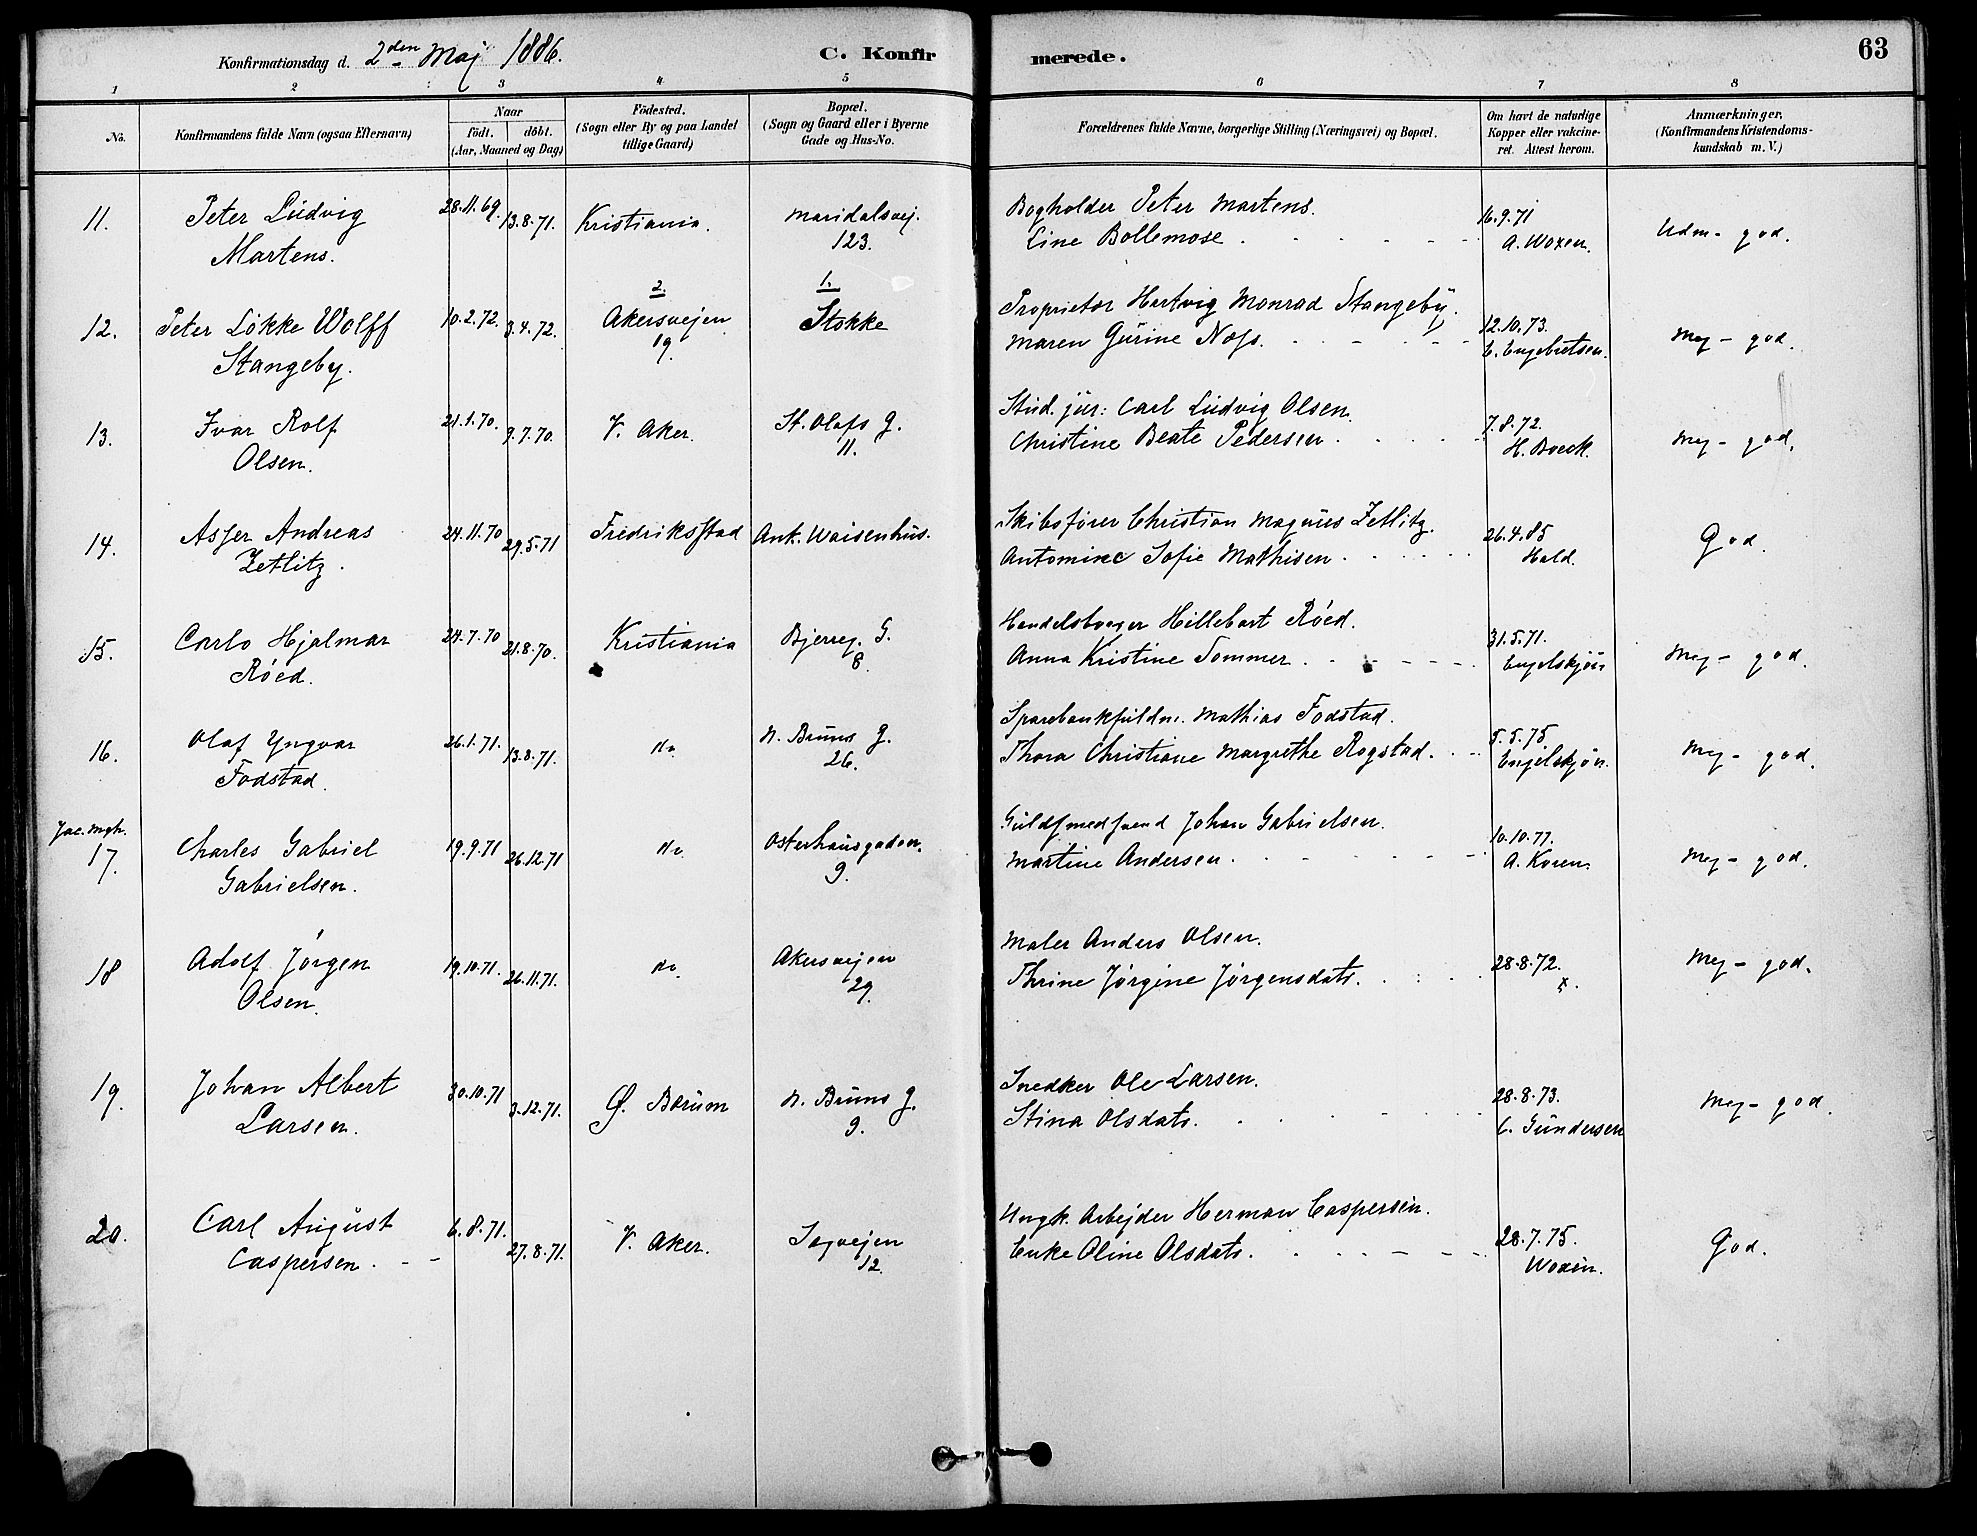 Konfirmationsdag d. 2den Maj 1886.
C. Konfirmerede.
63
1 2 3 4 5 6 7 8
No.
Konfirmandens fulde Navn (ogsaa Efternavn)
Naar
födt. döbt.
(Aar, Maaned og Dag)
Födested.
(Sogn eller By og paa Landet
tillige Gaard)
Bopæl.
(Sogn og Gaard eller i Byerne
Gade og Hus-No.
Forældrenes fulde Navne, borgerlige Stilling (Næringsvei) og Bopæl.
Om havt de naturlige
Kopper eller vakcine-
ret. Attest herom.
Anmærkninger.
(Konfirmandens Kristendoms-
kundskab m. V.)
11. Peter Ludvig 28.11.69. 13.8.71. Kristiania. Maridalsvej. Bogholder Peter Martens. 16.9.71 Udm- god.
Martens. 123. Line Bollemose A. Woxen.
2. 1.
12. Peter Løkke Wolff 10.2.72. 3.4.72. Akersvejen Stokke Proprietør Hartvig Monrad Stangeby. 12.10.73. Meg- god.
Stangeby. 19. Maren Gurine Næss. E. Engebretsen.
13. Ivar Rolf 21.1.70. 9.7.70. V. Aker. St. Olafs G. Stud. jur: Carl Ludvig Olsen. 7.8.72. Meg- god.
Olsen. 11. Christine Beate Pedersen. H. Boeck.
14. Asser Andreas 24.11.70 29.5.71 Fredriksstad Ank. Waisenhus. Skibsfører Christian Magnus Zetlitz. 26.4.85 God.
Zetlitz. Antomine Sofie Mathisen. Hald.
15. Carlo Hjalmar 24.7.70 21.8.70. Kristiania Bjerreg. G. Handelsborger Hillebart Røed. 31.5.71. Meg- god.
Røed. 8. Anna Kristine Tommer. Engelskjøn
16. Olaf Yngvar 26.1.71. 13.8.71. do. N. Bruns G. Sparebankfuldm. Mathias Fodstad. 5.5.75 Meg- god.
Fodstad. 26. Thora Christiane Margrethe Rogstad. Engelskjøn.
Jac. Mgh.
17. Charles Gabriel 19.9.71 26.12.71 do. Osterhausgaden. Guldsmedsvend Johan Gabrielsen. 10.10.77. Meg- god.
Gabrielsen. 9. Martine Andersen. A. Koren.
18 Adolf Jørgen 19.10.71. 26.11.71. do. Akersvejen Maler Anders Olsen. 28.8.72. Meg- god.
Olsen. 29. Thrine Jørgine Jørgensdatr. x.
19. Johan Albert 30.10.71 3.12.71. Ø. Bærum N. Bruns G. Snedker Ole Larsen. 28.8.73. Meg- god.
Larsen. 9. Stina Olsdatr. C. Gundersen
20. Carl August 6.8.71. 27.8.71. V. Aker. Sagvejen Ungk. Arbejder Herman Caspersen. 28.7.75. God.
Caspersen. 12. Enke Oline Olsdatr. Woxen.